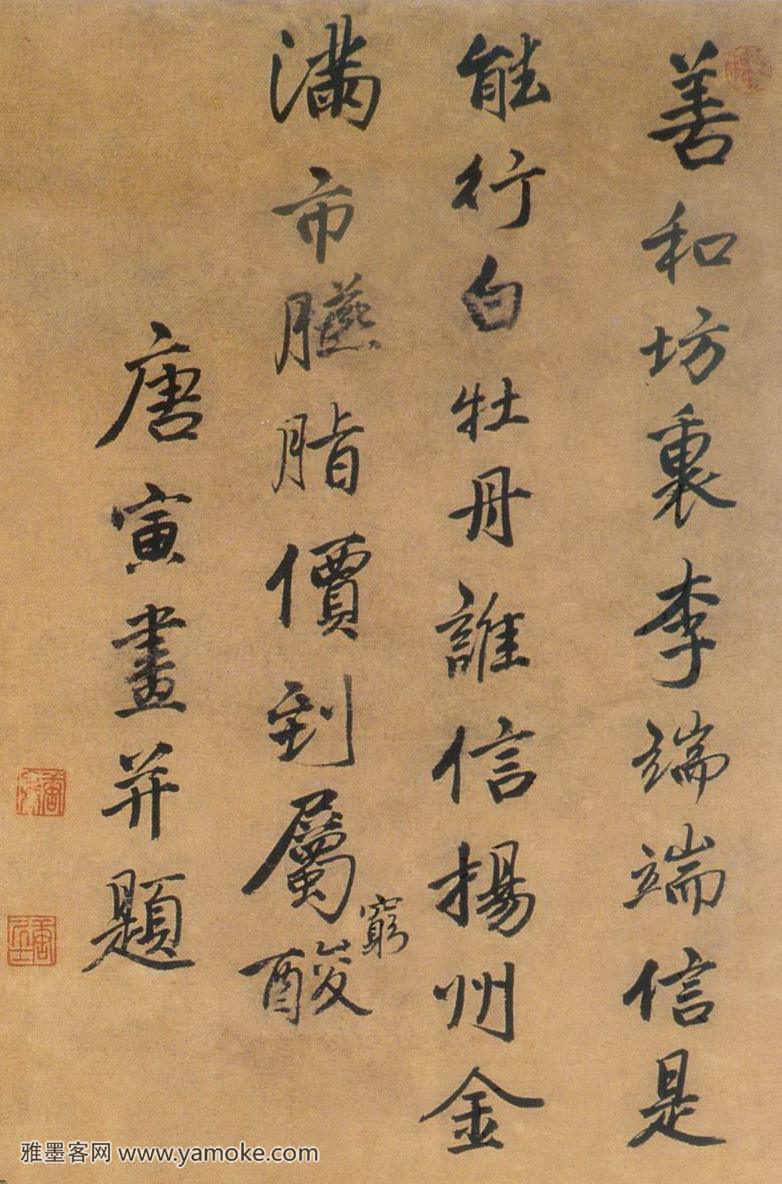 善和坊裏李端端信是
能行白牡丹誰信揚州金
滿市臙脂價到屬窮酸
唐寅畫并題
雅墨客网 www.yamoke.com